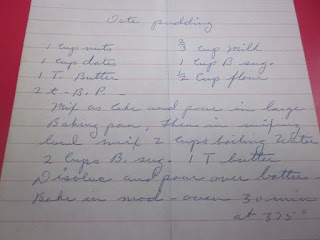 Date pudding
1 cup nuts 2/3 cup milk
1 cup dates 1 cup B sug.
1 T. Butter 1/2 Cup flour
2 t - B. P. -
Mix as cake and pour in large
Baking pan, then in mixing
bowl mix 2 cups boiling water
2 cups B. sug. 1 T butter
Disolve and pour over batter -
Bake in mod - oven 30 min
at 325°